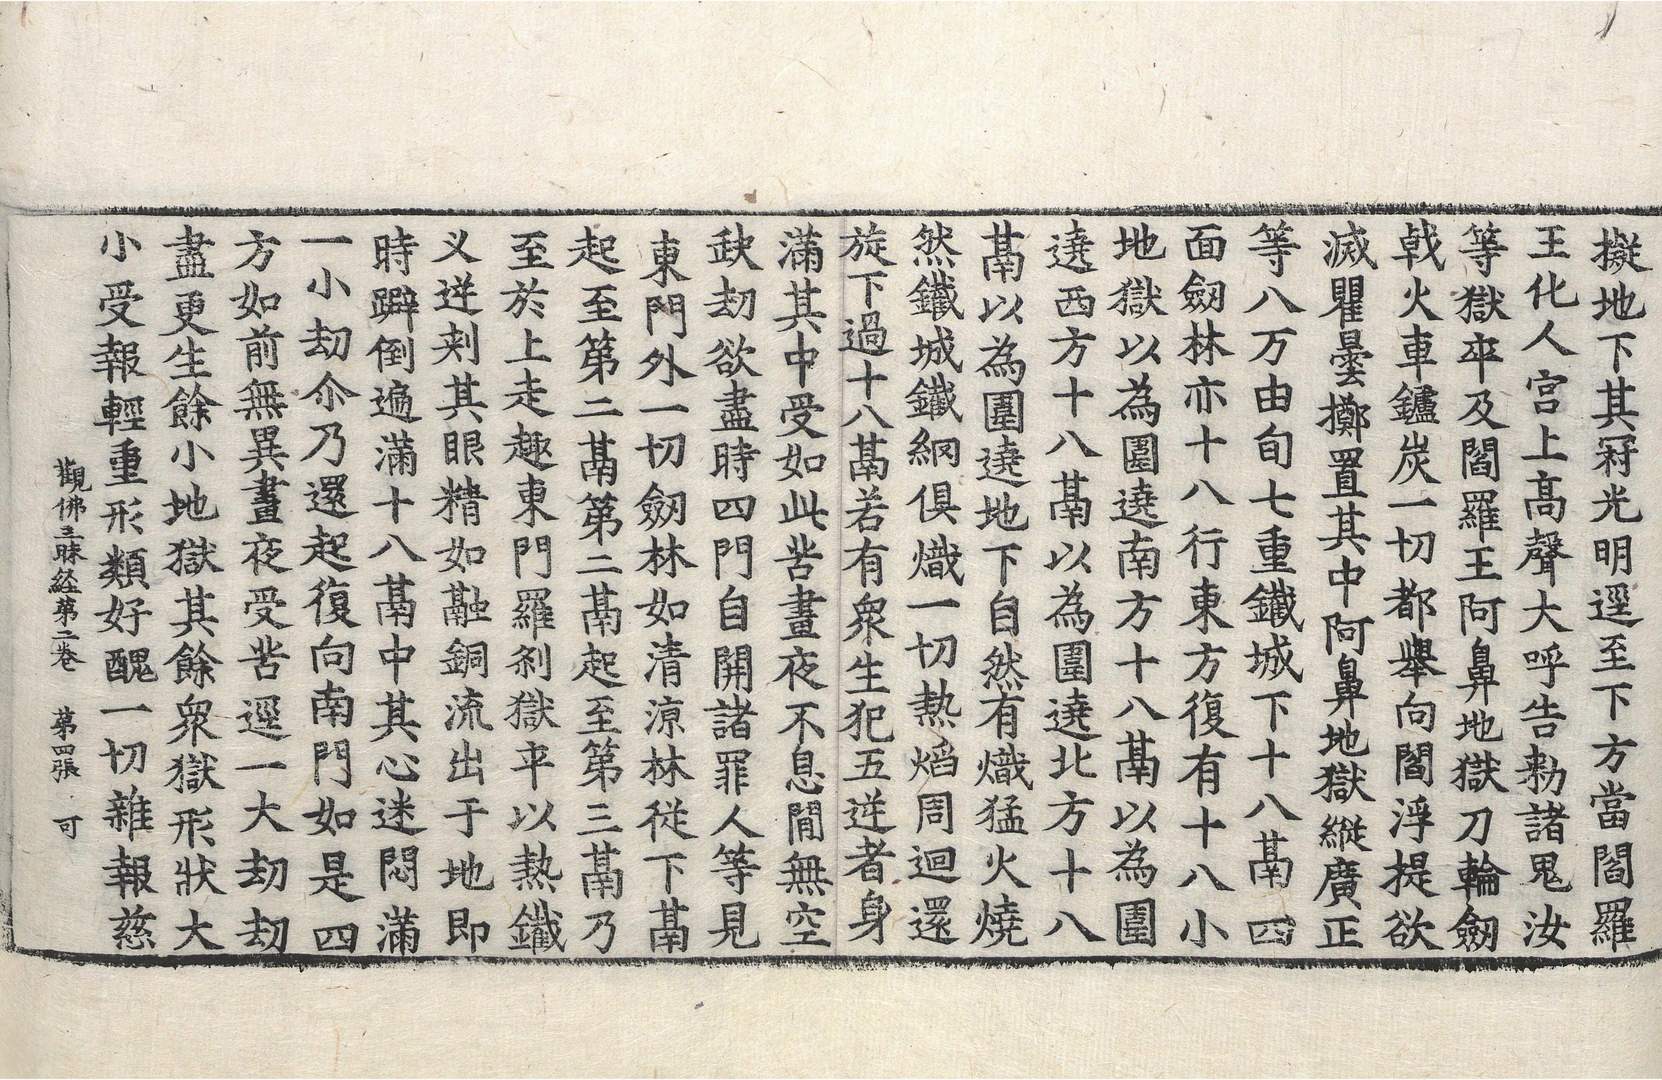 擬地下其冠光明逕至下方當閻羅
王化人宮上高聲大呼告勑諸鬼汝
等獄卒及閻羅王阿鼻地獄刀輪劒
戟火車鑪炭一切都舉向閻浮提欲
滅瞿曇擲置其中阿鼻地獄縱廣正
等八万由旬七重鐵城下十八鬲四
面劒林亦十八行東方復有十八小
地獄以為圍遶南方十八鬲以為圍
遶西方十八鬲以為圍遶北方十八
鬲以為圍遶地下自然有熾猛火燒
然鐵城鐵網俱熾一切熱焰周迴還
旋下過十八鬲若有衆生犯五逆者身
滿其中受如此苦晝夜不息閒無空
缺劫欲盡時四門自開諸罪人等見
東門外一切劒林如清涼林從下鬲
起至第二鬲第二鬲起至第三鬲乃
至於上走趣東門羅刹獄卒以熱鐵
叉逆刾其眼精如融銅流出于地即
時躃倒遍滿十八鬲中其心迷悶滿
一小劫尒乃還起復向南門如是四
方如前無異晝夜受苦逕一大劫劫
盡更生餘小地獄其餘衆獄形狀大
小受報輕重形類好醜一切雜報慈
觀佛三昧経第二卷　第四張　可